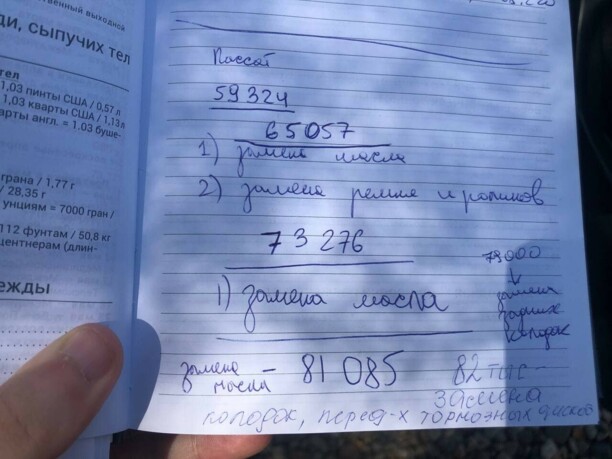 ственный выходной
ди, сыпучих тел
тел
1,03 пинты США / 0,57 л
1,03 кварты США / 1,13 л
арты англ. = 1.03 буше-
грана / 1,77 г
/ 28,35 г
унциям = 7000 гран /
112 фунтам / 50,8 кг
центнерам (длин-
ежды
Пассат
59324
65057
1) замена масла
2) замена ремня и роликов
73 276
1) замена масла
79000
замена
задних
колодок
замена масла - 81 085
82 тыс -
замена
колодок, перед-х тормозных дисков